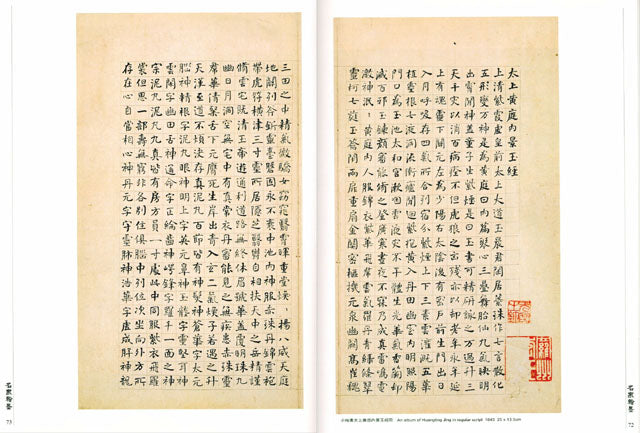 太上黃庭內景玉經
上清紫霞虛皇前太上大道玉晨君閒居蘂珠作七言散化
五形變萬神是為黃庭曰內篇琴心三疊舞胎仙九氣映明
出霄間神蓋童子生紫煙是曰玉書可精研詠之萬過升三
天千災以消百病痊不憚虎狼之凶殘亦以却老年永延
上有魂靈下關元左為少陽右太陰後有密戶前生門出日
入月呼吸存四氣所合列宿分紫煙上下三素雲灌溉五華
植靈根七液洞流衝廬間迴紫抱黃入丹田幽室內明照陽
門口為玉池太和官漱咽靈液災不干體生光華氣香蘭却
滅百邪玉鍊顏審能修之登廣寒晝夜不寐乃成真雷鳴電
激神泯泯黃庭內人服錦衣紫華飛裙雲氣羅丹青綠絛翠
靈柯七蕤玉籥閉兩扉重扇金關密樞機元泉幽關高崔巍
三田之中精氣微嬌女窈窕翳霄暉重堂煥煥揚八威天庭
地關列斧斤靈臺盤固永不衰中池內神服赤珠丹錦雲袍
帶虎符橫津三寸靈所居隱芝翳鬱自相扶天中之岳精謹
脩雲宅既清玉帝遊通利道路無終休眉號華蓋覆明珠九
幽日月洞空無宅中有真常衣丹審能見之無疾患赤珠靈
裙華蒨粲舌下元膺死生岸出青入玄二氣煥子若遇之升
天漢至道不煩決存真泥丸百節皆有神髮神蒼華字太元
腦神精根字泥丸眼神明上字英元鼻神玉壟字靈堅耳神
空閑字幽田舌神通命字正綸齒神崿鋒字羅千一面之神
宗泥丸泥丸九真皆有房方員一寸處此中同服紫衣飛羅
裳但思一部壽無窮非各別住俱腦中列位次坐向外方所
存在心自當相心神丹元字守靈肺神皓華字虛成肝神龍
小楷書太上黃庭內景玉經冊 An album of Huangting Jing in regular script 1945 25 x 13.5cm
名家翰墨
72
名家翰墨
73